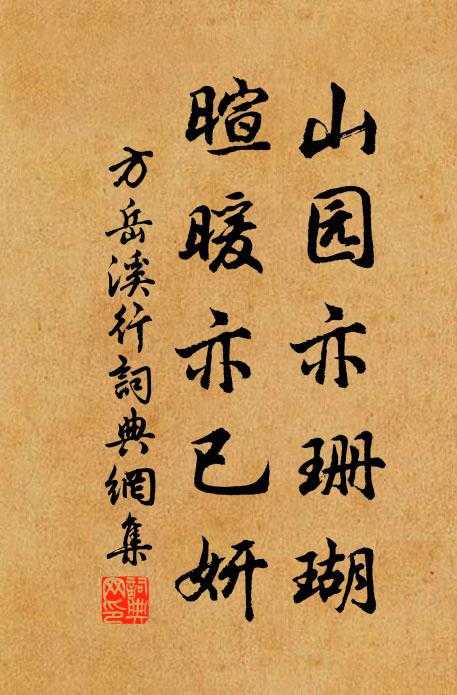 山园亦珊瑚
暄暖亦已妍
方岳溪行詞典網集
詞典网印